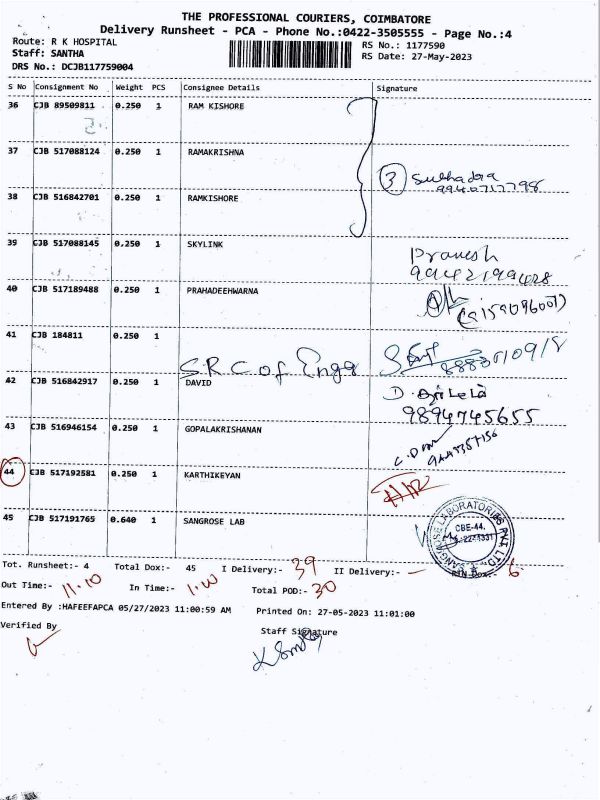 THE PROFESSIONAL COURIERS, COIMBATORE
Delivery Runsheet - PCA - Phone No.:0422-3505555 - Page No.:4
Route: R K HOSPITAL
Staff: SANTHA
DRS No.: DCJB117759004
RS No.: 1177590
RS Date: 27-May-2023
S No Consignment No Weight PCS Consignee Details Signature
36 CJB 89509811 0.250 1 RAM KISHORE
37 CJB 517088124 0.250 1 RAMAKRISHNA
3 Subhadra
9940717798
38 CJB 516842701 0.250 1 RAMKISHORE
39 CJB 517088145 0.250 1 SKYLINK
Pranesh
9942199428
40 CJB 517189488 0.250 1 PRAHADEEHWARNA
41 CJB 184811 0.250 1
S.R.C of Engg
42 CJB 516842917 0.250 1 DAVID
9894745655
43 CJB 516946154 0.250 1 GOPALAKRISHANAN
44 CJB 517192581 0.250 1 KARTHIKEYAN
45 CJB 517191765 0.640 1 SANGROSE LAB
CBE-44.
Tot. Runsheet:- 4 Total Dox:- 45 I Delivery:- 39 II Delivery:- - RTN Dox:- 6
Out Time:- 11.10 In Time:- 1.00 Total POD:- 30
Entered By :HAFEEFAPCA 05/27/2023 11:00:59 AM Printed On: 27-05-2023 11:01:00
Verified By
Staff Signature